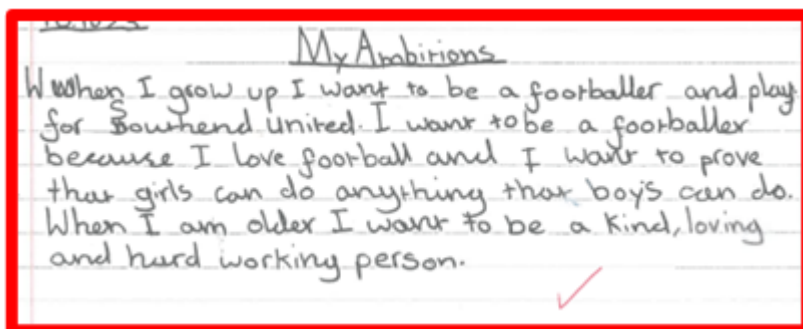 My Ambitions
When I grow up I want to be a footballer and play
for Southend United. I want to be a footballer
because I love football and I want to prove
that girls can do anything that boy's can do.
When I am older I want to be a kind, loving
and hard working person.